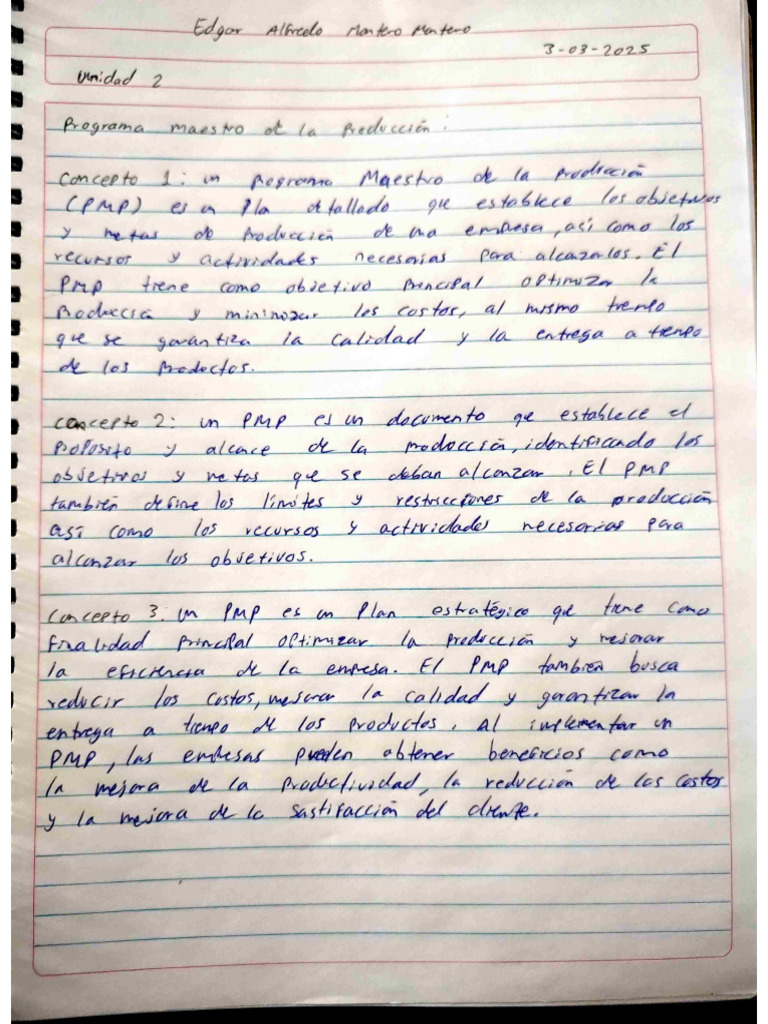 Edgar Alfredo Montero Montero
3-03-2025
Unidad 2
Programa maestro de la Producción:
Concepto 1: un programa Maestro de la Producción
(PMP) es un Plan detallado que establece los objetivos
y metas de Producción de una empresa, así como los
recursos y actividades necesarias para alcanzarlos. El
PMP tiene como objetivo Principal optimizar la
Producción y minimizar los costos, al mismo tiempo
que se garantiza la calidad y la entrega a tiempo
de los Productos.
Concepto 2: un PMP es un documento que establece el
Proposito y alcance de la producción, identificando los
objetivos y metas que se deban alcanzar. El PMP
también define los límites y restricciones de la producción
así como los recursos y actividades necesarias para
alcanzar los objetivos.
Concepto 3: un PMP es un Plan estratégico que tiene como
finalidad Principal optimizar la producción y mejorar
la eficiencia de la empresa. El PMP también busca
reducir los costos, mejorar la calidad y garantizar la
entrega a tiempo de los productos. Al implementar un
PMP, las empresas pueden obtener beneficios como
la mejora de la Productividad, la reducción de los costos
y la mejora de la sastifacción del cliente.